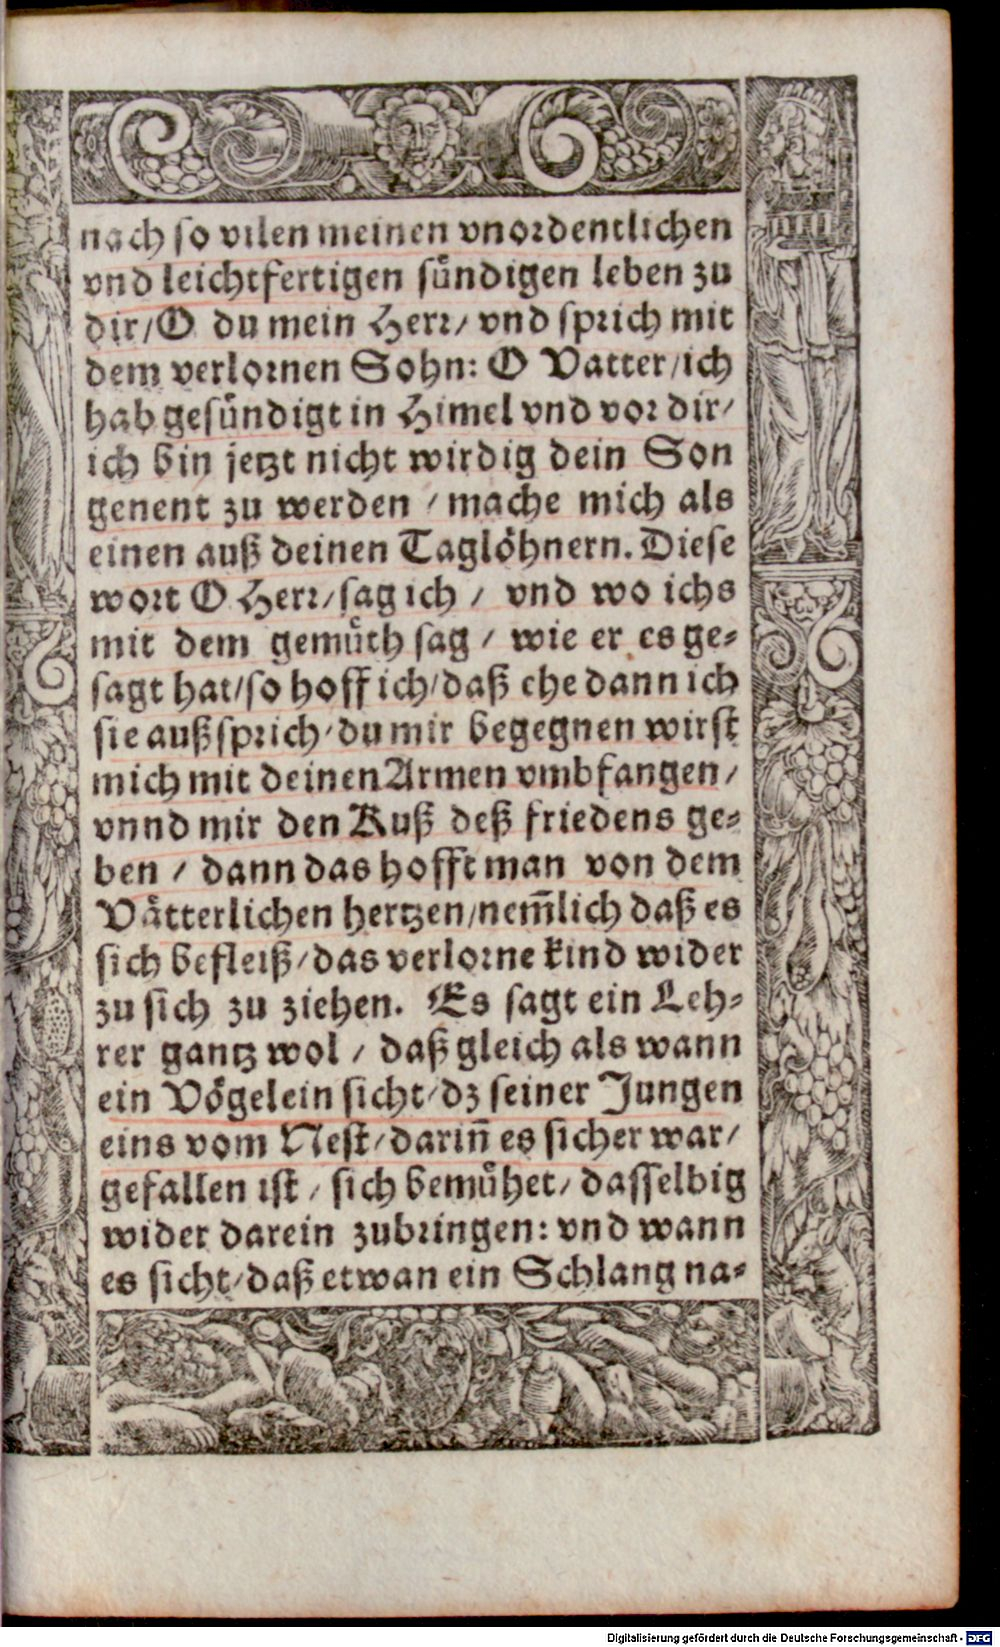 nach so vilen meinen vnordentlichen
vnd leichtfertigen suͤndigen leben zu
dir/ O du mein Herr/ vnd sprich mit
dem verlornen Sohn: O Vatter/ ich
hab gesuͤndigt in Himel vnd vor dir/
ich bin jetzt nicht wirdig dein Son
genent zu werden / mache mich als
einen auß deinen Tagloͤhnern. Diese
wort O Herr/ sag ich / vnd wo ichs
mit dem gemuͤth sag / wie er es ge⸗
sagt hat/ so hoff ich/ daß ehe dann ich
sie außsprich/ du mir begegnen wirst
mich mit deinen Armen vmbfangen/
vnnd mir den Kuß deß friedens ge⸗
ben / dann das hofft man von dem
Vaͤtterlichen hertzen/ nem̃lich daß es
sich befleiß/ das verlorne kind wider
zu sich zu ziehen. Es sagt ein Leh⸗
rer gantz wol / daß gleich als wann
ein Voͤgelein sicht/ dz seiner Jungen
eins vom Nest/ darin̄ es sicher war/
gefallen ist / sich bemuͤhet/ dasselbig
wider darein zubringen: vnd wann
es sicht/ daß etwan ein Schlang na⸗
Digitalisierung gefördert durch die Deutsche Forschungsgemeinschaft - DFG